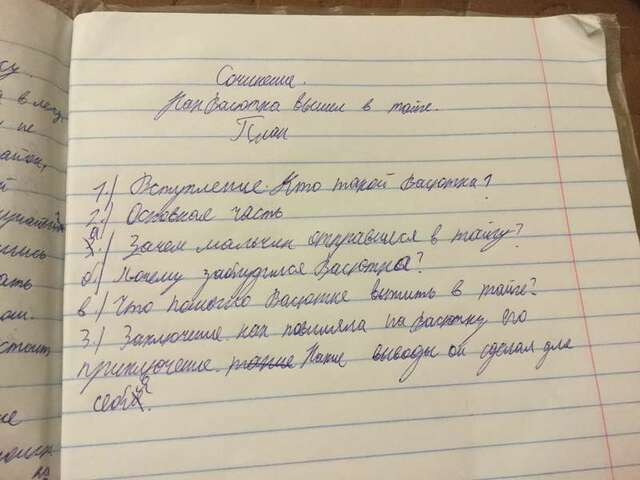 су.
а в лену
и не
Сочинение.
Как Васютка вышел в тайге.
План
1.) Вступление. Кто такой Васютка?
2.) Основная часть
а.) Зачем мальчик отправился в тайгу?
б.) Почему заблудился Васютка?
в.) Что помогло Васютке выжить в тайге?
3.) Заключение. как повлияла на Васютку его
приключение. такие Какие выводы он сделал для
себя.
ись
ать
ом.
стоит